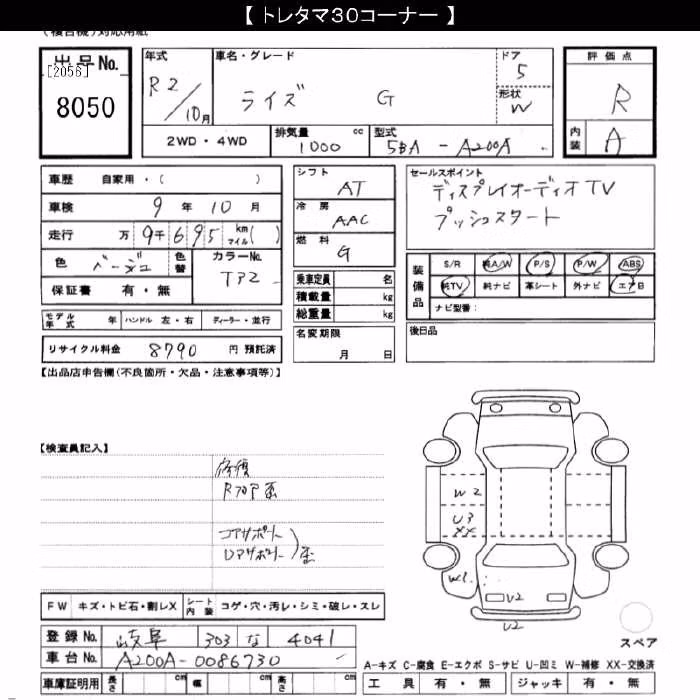 【 トレタマ30コーナー 】
(複合機)対応用紙
出品No.
[2056]
8050
年式
R2/10月
車名・グレード
ライズ G
ドア
5
形状
W
2WD・4WD
排気量 cc
1000
型式
5BA - A200A
評価点
R
内装
A
車歴 自家用・( )
車検 9年 10月
走行 万 9千 6 9 5 km マイル( )
色 ベージュ 色替
カラーNo.
TP2
保証書 有・無
モデル年式 年 ハンドル 左・右 ディーラー・並行
リサイクル料金 8790 円 預託済
シフト
AT
冷房
AAC
燃料
G
乗車定員 名
積載量 kg
総重量 kg
名変期限
月 日
セールスポイント
ディスプレイオーディオTV
プッシュスタート
装備品
S/R 純A/W P/S P/W ABS
純TV 純ナビ 革シート 外ナビ エアB
ナビ型番:
後日品
【出品店申告欄(不良箇所・欠品・注意事項等)】
【検査員記入】
修復
コアサポート
W2
U3
XX
W1
V2
U2
スペア
FW キズ・トビ石・割レX
シート内装 コゲ・穴・汚レ・シミ・破レ・スレ
登録No. 岐阜 303 な 4041
車台No. A200A-0086730
車庫証明用 長さ cm 幅 cm 高さ cm
A-キズ C-腐食 E-エクボ S-サビ U-凹ミ W-補修 XX-交換済
工具 有・無 ジャッキ 有・無